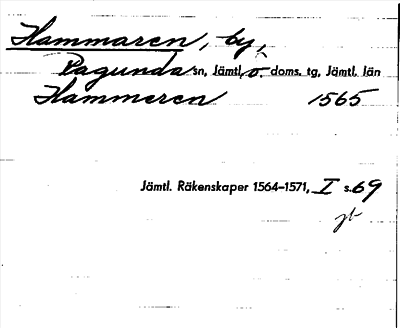 Hammaren, by,
Ragunda sn, Jämtl. ö. doms. tg, Jämtl. län
Hammeren 1565
Jämtl. Räkenskaper 1564-1571, I s. 69